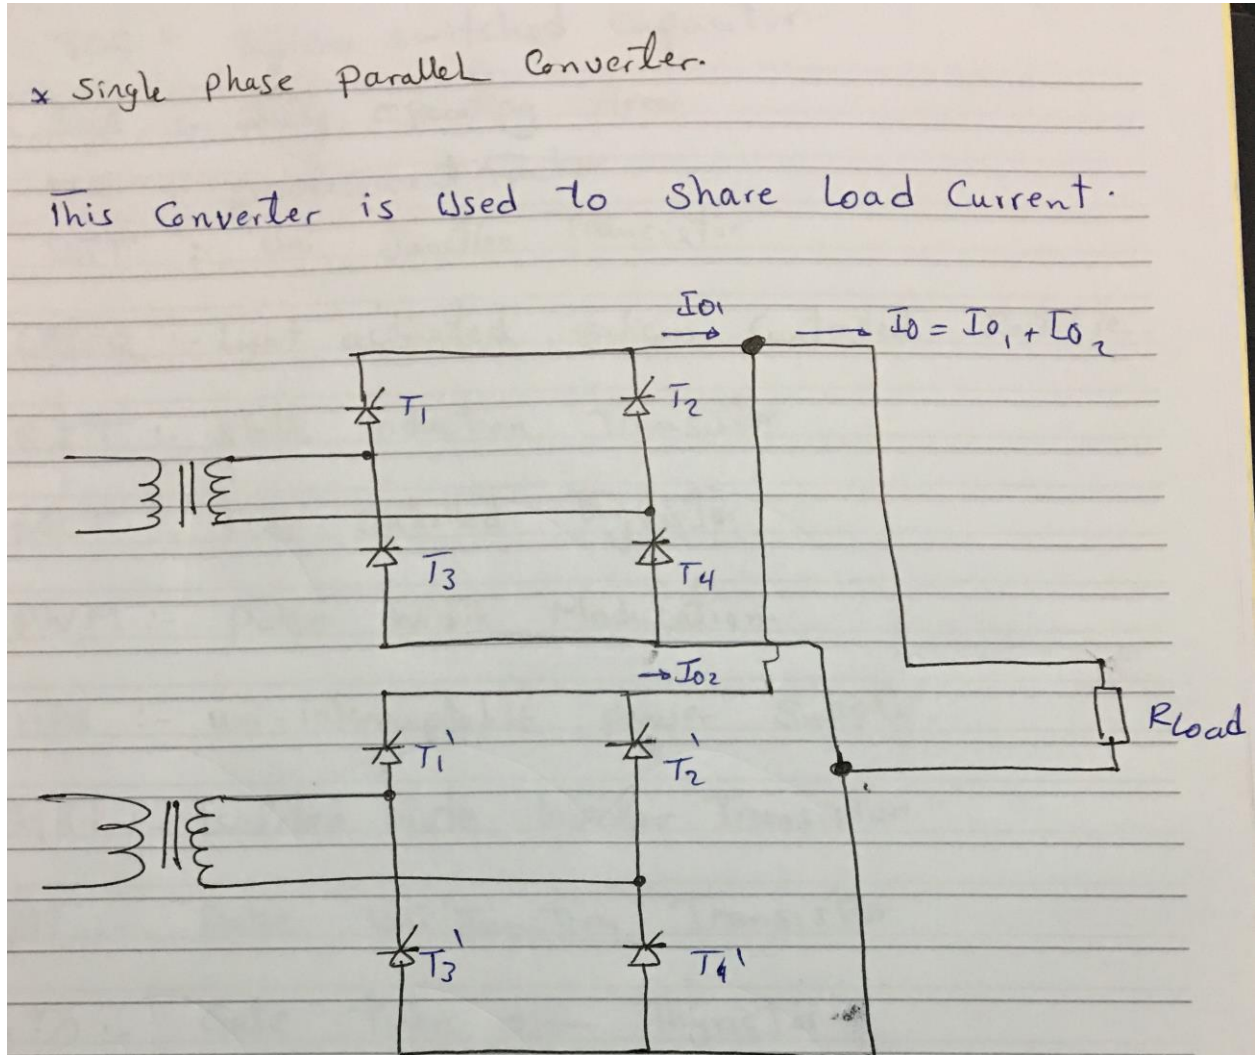 * Single phase parallel Converter.
This Converter is Used to Share Load Current.
I01
I0 = I01 + I02
T1
T2
T3
T4
I02
RLoad
T1'
T2'
T3'
T4'